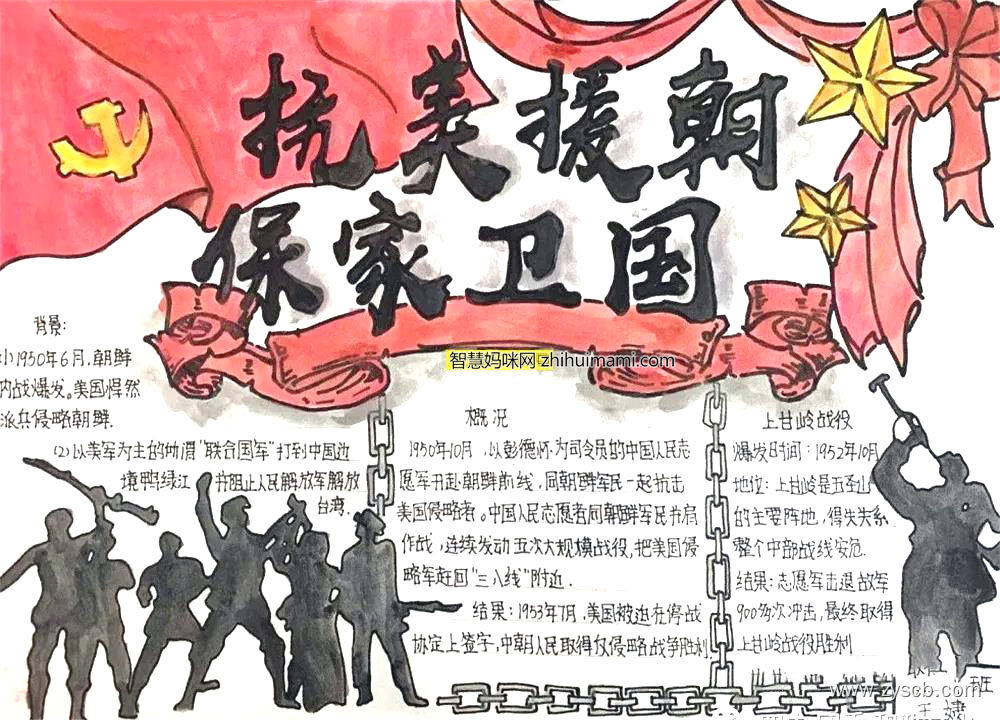 抗美援朝
保家卫国
智慧妈咪网 zhihuimami.com
背景:
(1)1950年6月,朝鲜
内战爆发。美国悍然
派兵侵略朝鲜.
(2)以美军为主的所谓“联合国军”打到中国边
境鸭绿江 并阻止人民解放军解放
台湾.
概况
1950年10月,以彭德怀为司令员的中国人民志
愿军开赴朝鲜前线,同朝鲜军民一起抗击
美国侵略者。中国人民志愿者同朝鲜军民并肩
作战,连续发动五次大规模战役,把美国侵
略军赶回“三八线”附近.
结果:1953年7月,美国被迫在停战
协定上签字,中朝人民取得反侵略战争胜利.
上甘岭战役
爆发时间:1952年10月
地位:上甘岭是五圣山
的主要阵地,得失关系
整个中部战线安危.
结果:志愿军击退敌军
900多次冲击,最终取得
上甘岭战役胜利
班
www.zyscb.com
王婕